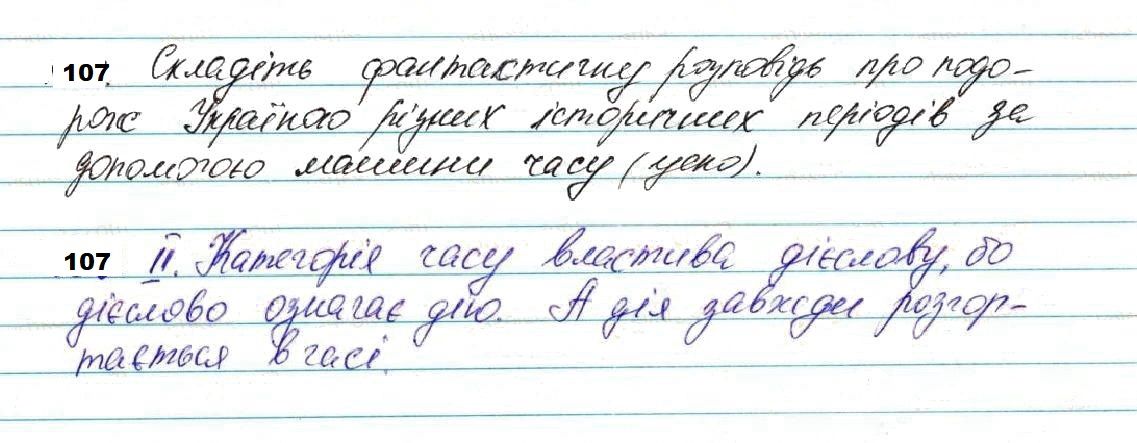 107. Складіть фантастичну розповідь про подо-
рож Україною різних історичних періодів за
допомогою машини часу (усно).
107 II. Категорія часу властива дієслову, бо
дієслово означає дію. А дія завжди розгор-
тається в часі.